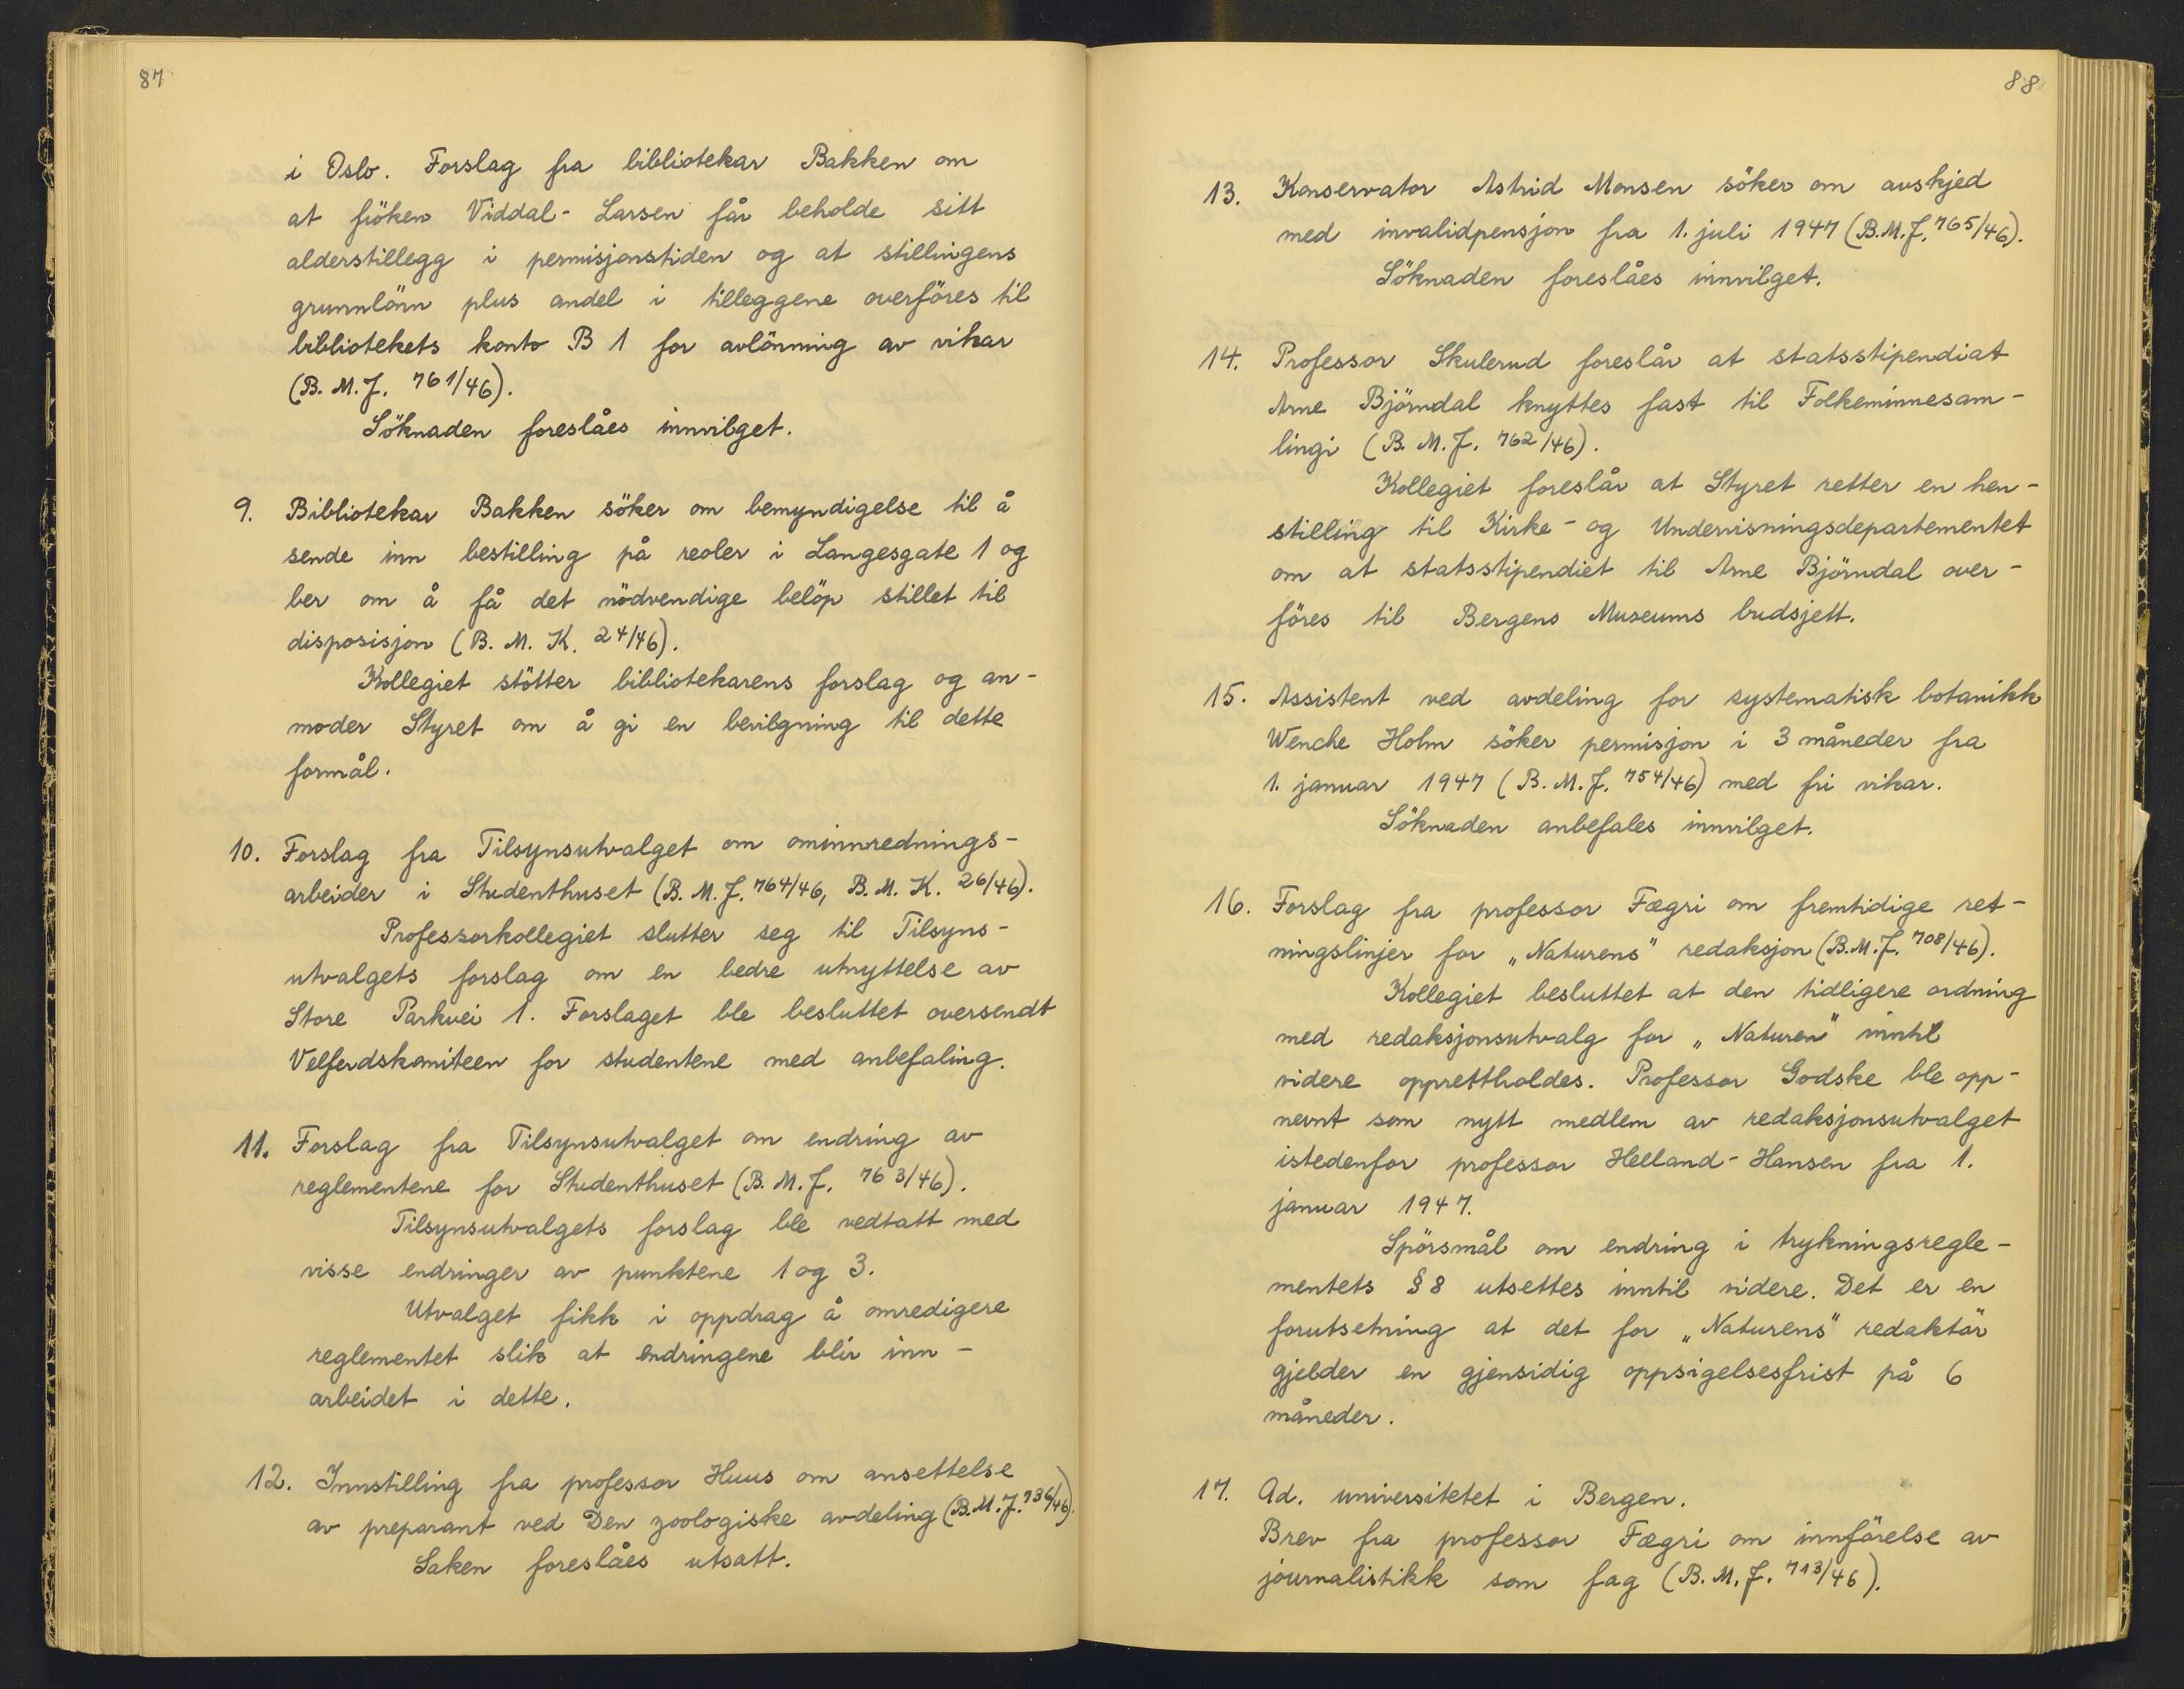 87
i Oslo. Forslag fra bibliotekar Bakken om
at fröken Viddal-Larsen får beholde sitt
alderstillegg i permisjonstiden og at stillingens
grunnlönn plus andel i tilleggene overföres til
bibliotekets konto B 1 for avlönning av vikar
(B. M. J. 761/46).
Söknaden foreslåes innvilget.
9. Bibliotekar Bakken söker om bemyndigelse til å
sende inn bestilling på reoler i Langesgate 1 og
ber om å få det nödvendige belöp stillet til
disposisjon (B. M. K. 24/46).
Kollegiet stötter bibliotekarens forslag og an-
moder Styret om å gi en bevilgning til dette
formål.
10. Forslag fra Tilsynsutvalget om ominnrednings-
arbeider i Studenthuset (B. M. J. 764/46, B. M. K. 26/46).
Professorkollegiet slutter seg til Tilsyns-
utvalgets forslag om en bedre utnyttelse av
Store Parkvei 1. Forslaget ble besluttet oversendt
Velferdskomiteen for studentene med anbefaling.
11. Forslag fra Tilsynsutvalget om endring av
reglementene for Studenthuset (B. M. J. 763/46).
Tilsynsutvalgets forslag ble vedtatt med
visse endringer av punktene 1 og 3.
Utvalget fikk i oppdrag å omredigere
reglementet slik at endringene blir inn-
arbeidet i dette.
12. Innstilling fra professor Huus om ansettelse
av preparant ved Den zoologiske avdeling (B. M. J. 736/46).
Saken foreslåes utsatt.
88
13. Konservator Astrid Monsen söker om avskjed
med invalidpensjon fra 1. juli 1947 (B. M. J. 765/46).
Söknaden foreslåes innvilget.
14. Professor Skulerud foreslår at statsstipendiat
Arne Björndal knyttes fast til Folkeminnesam-
lingi (B. M. J. 762/46).
Kollegiet foreslår at Styret retter en hen-
stilling til Kirke- og Undervisningsdepartementet
om at statsstipendiet til Arne Björndal over-
föres til Bergens Museums budsjett.
15. Assistent ved avdeling for systematisk botanikk
Wenche Holm söker permisjon i 3 måneder fra
1. januar 1947 (B. M. J. 754/46) med fri vikar.
Söknaden anbefales innvilget.
16. Forslag fra professor Fægri om fremtidige ret-
ningslinjer for „Naturens" redaksjon (B. M. J. 708/46).
Kollegiet besluttet at den tidligere ordning
med redaksjonsutvalg for „Naturen" inntil
videre opprettholdes. Professor Godske ble opp-
nevnt som nytt medlem av redaksjonsutvalget
istedenfor professor Helland-Hansen fra 1.
januar 1947.
Spörsmål om endring i trykningsregle-
mentets § 8 utsettes inntil videre. Det er en
forutsetning at det for „Naturens" redaktör
gjelder en gjensidig oppsigelsesfrist på 6
måneder.
17. Ad. universitetet i Bergen.
Brev fra professor Fægri om innförelse av
journalistikk som fag (B. M. J. 713/46).